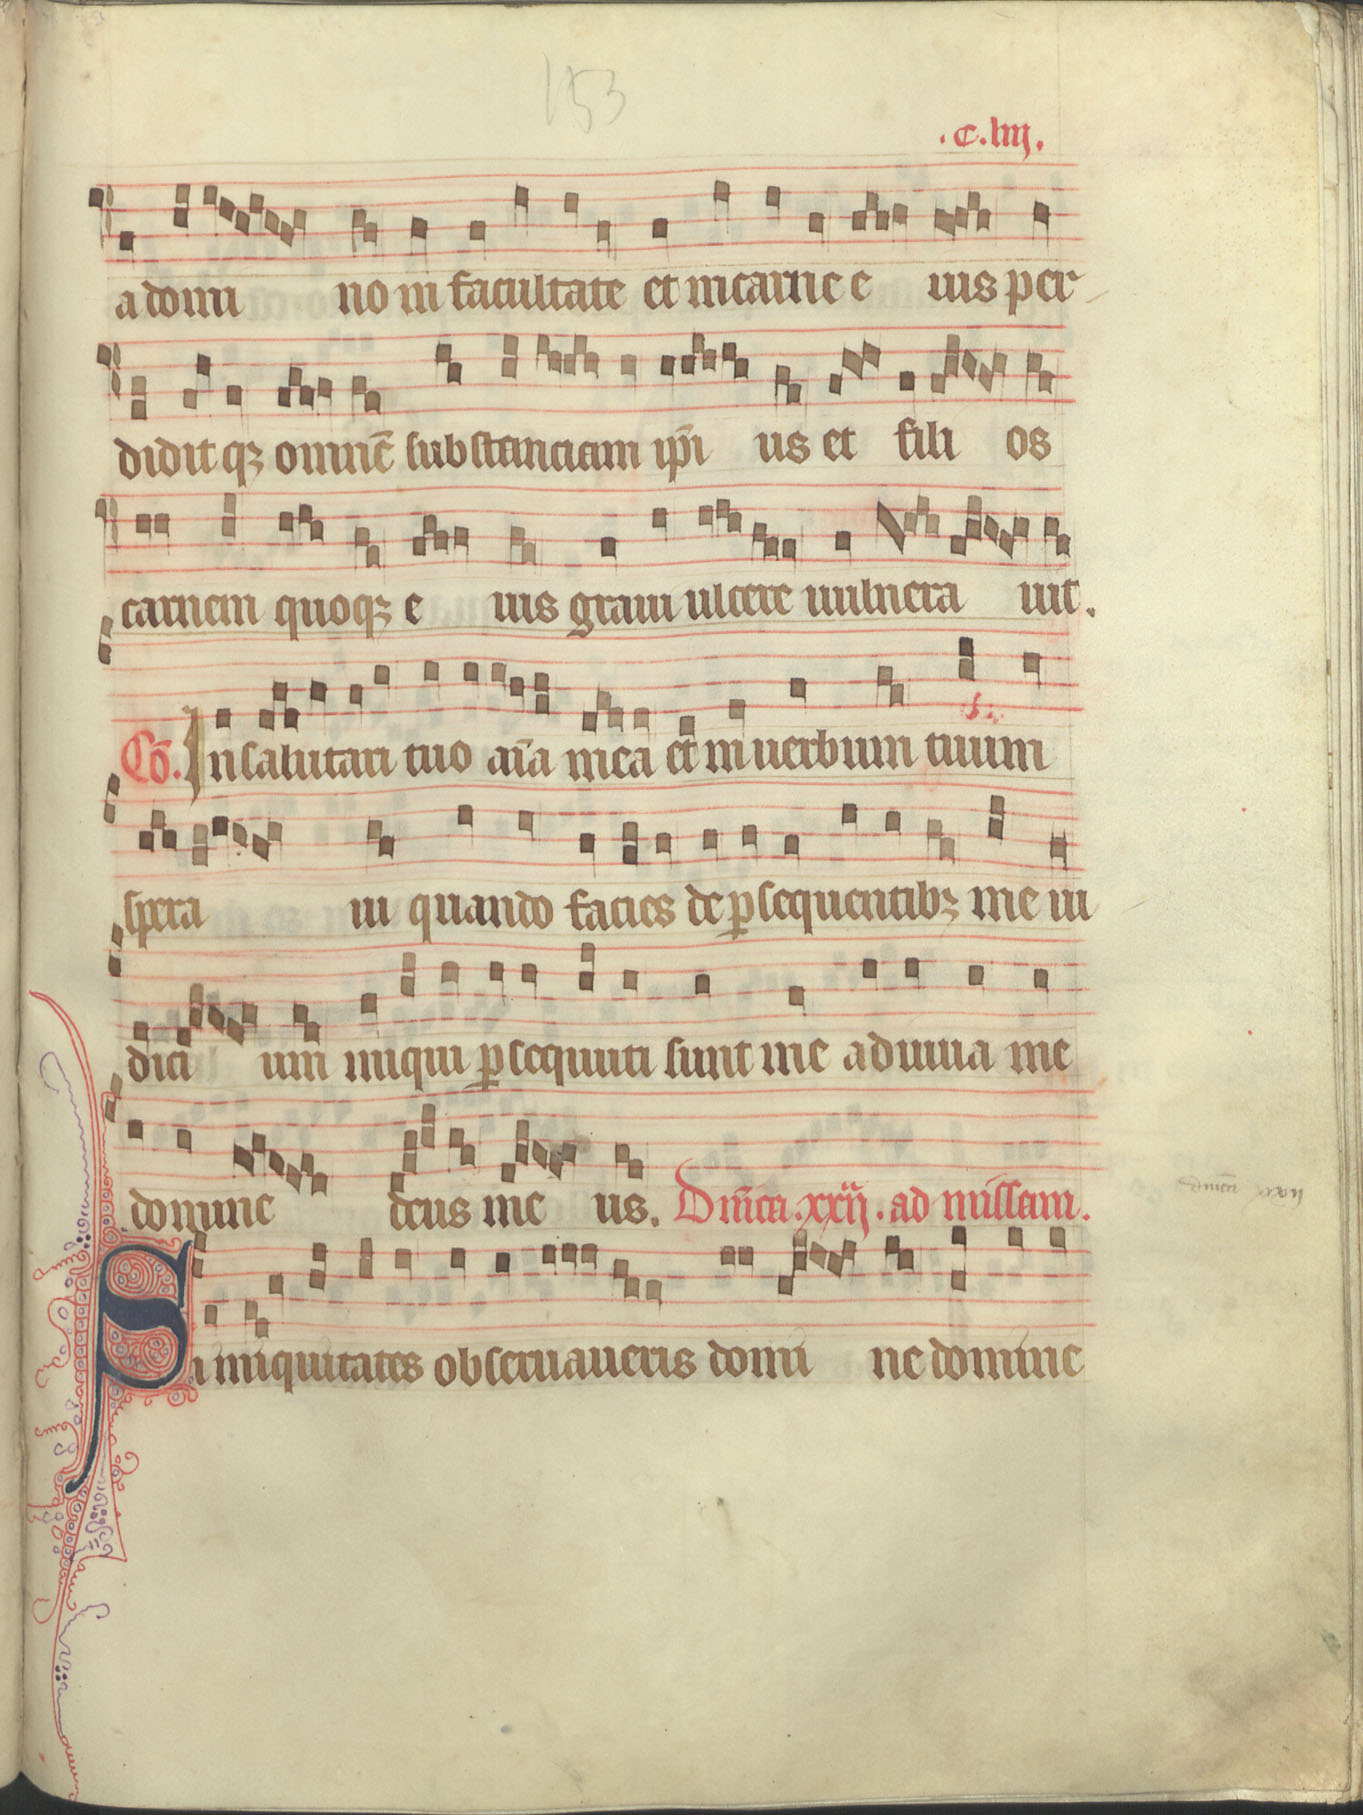 153
.c.liiij.
a domi no in facultate et in carne e ius per
didit qꝫ omnē substanciam ip̄i us et fili os
carnem quoqꝫ e ius graui ulcere uulnera uit.
Cō. In salutari tuo aīa mea et in uerbum tuum
spera ui quando facies de ꝑsequentibꝫ me iu
dici um iniqui ꝑsequuti sunt me adiuua me
domine deus me us. Dn̄ica.xxij.ad missam.
dn̄ica xxij
Si iniquitates obseruaueris domi ne domine